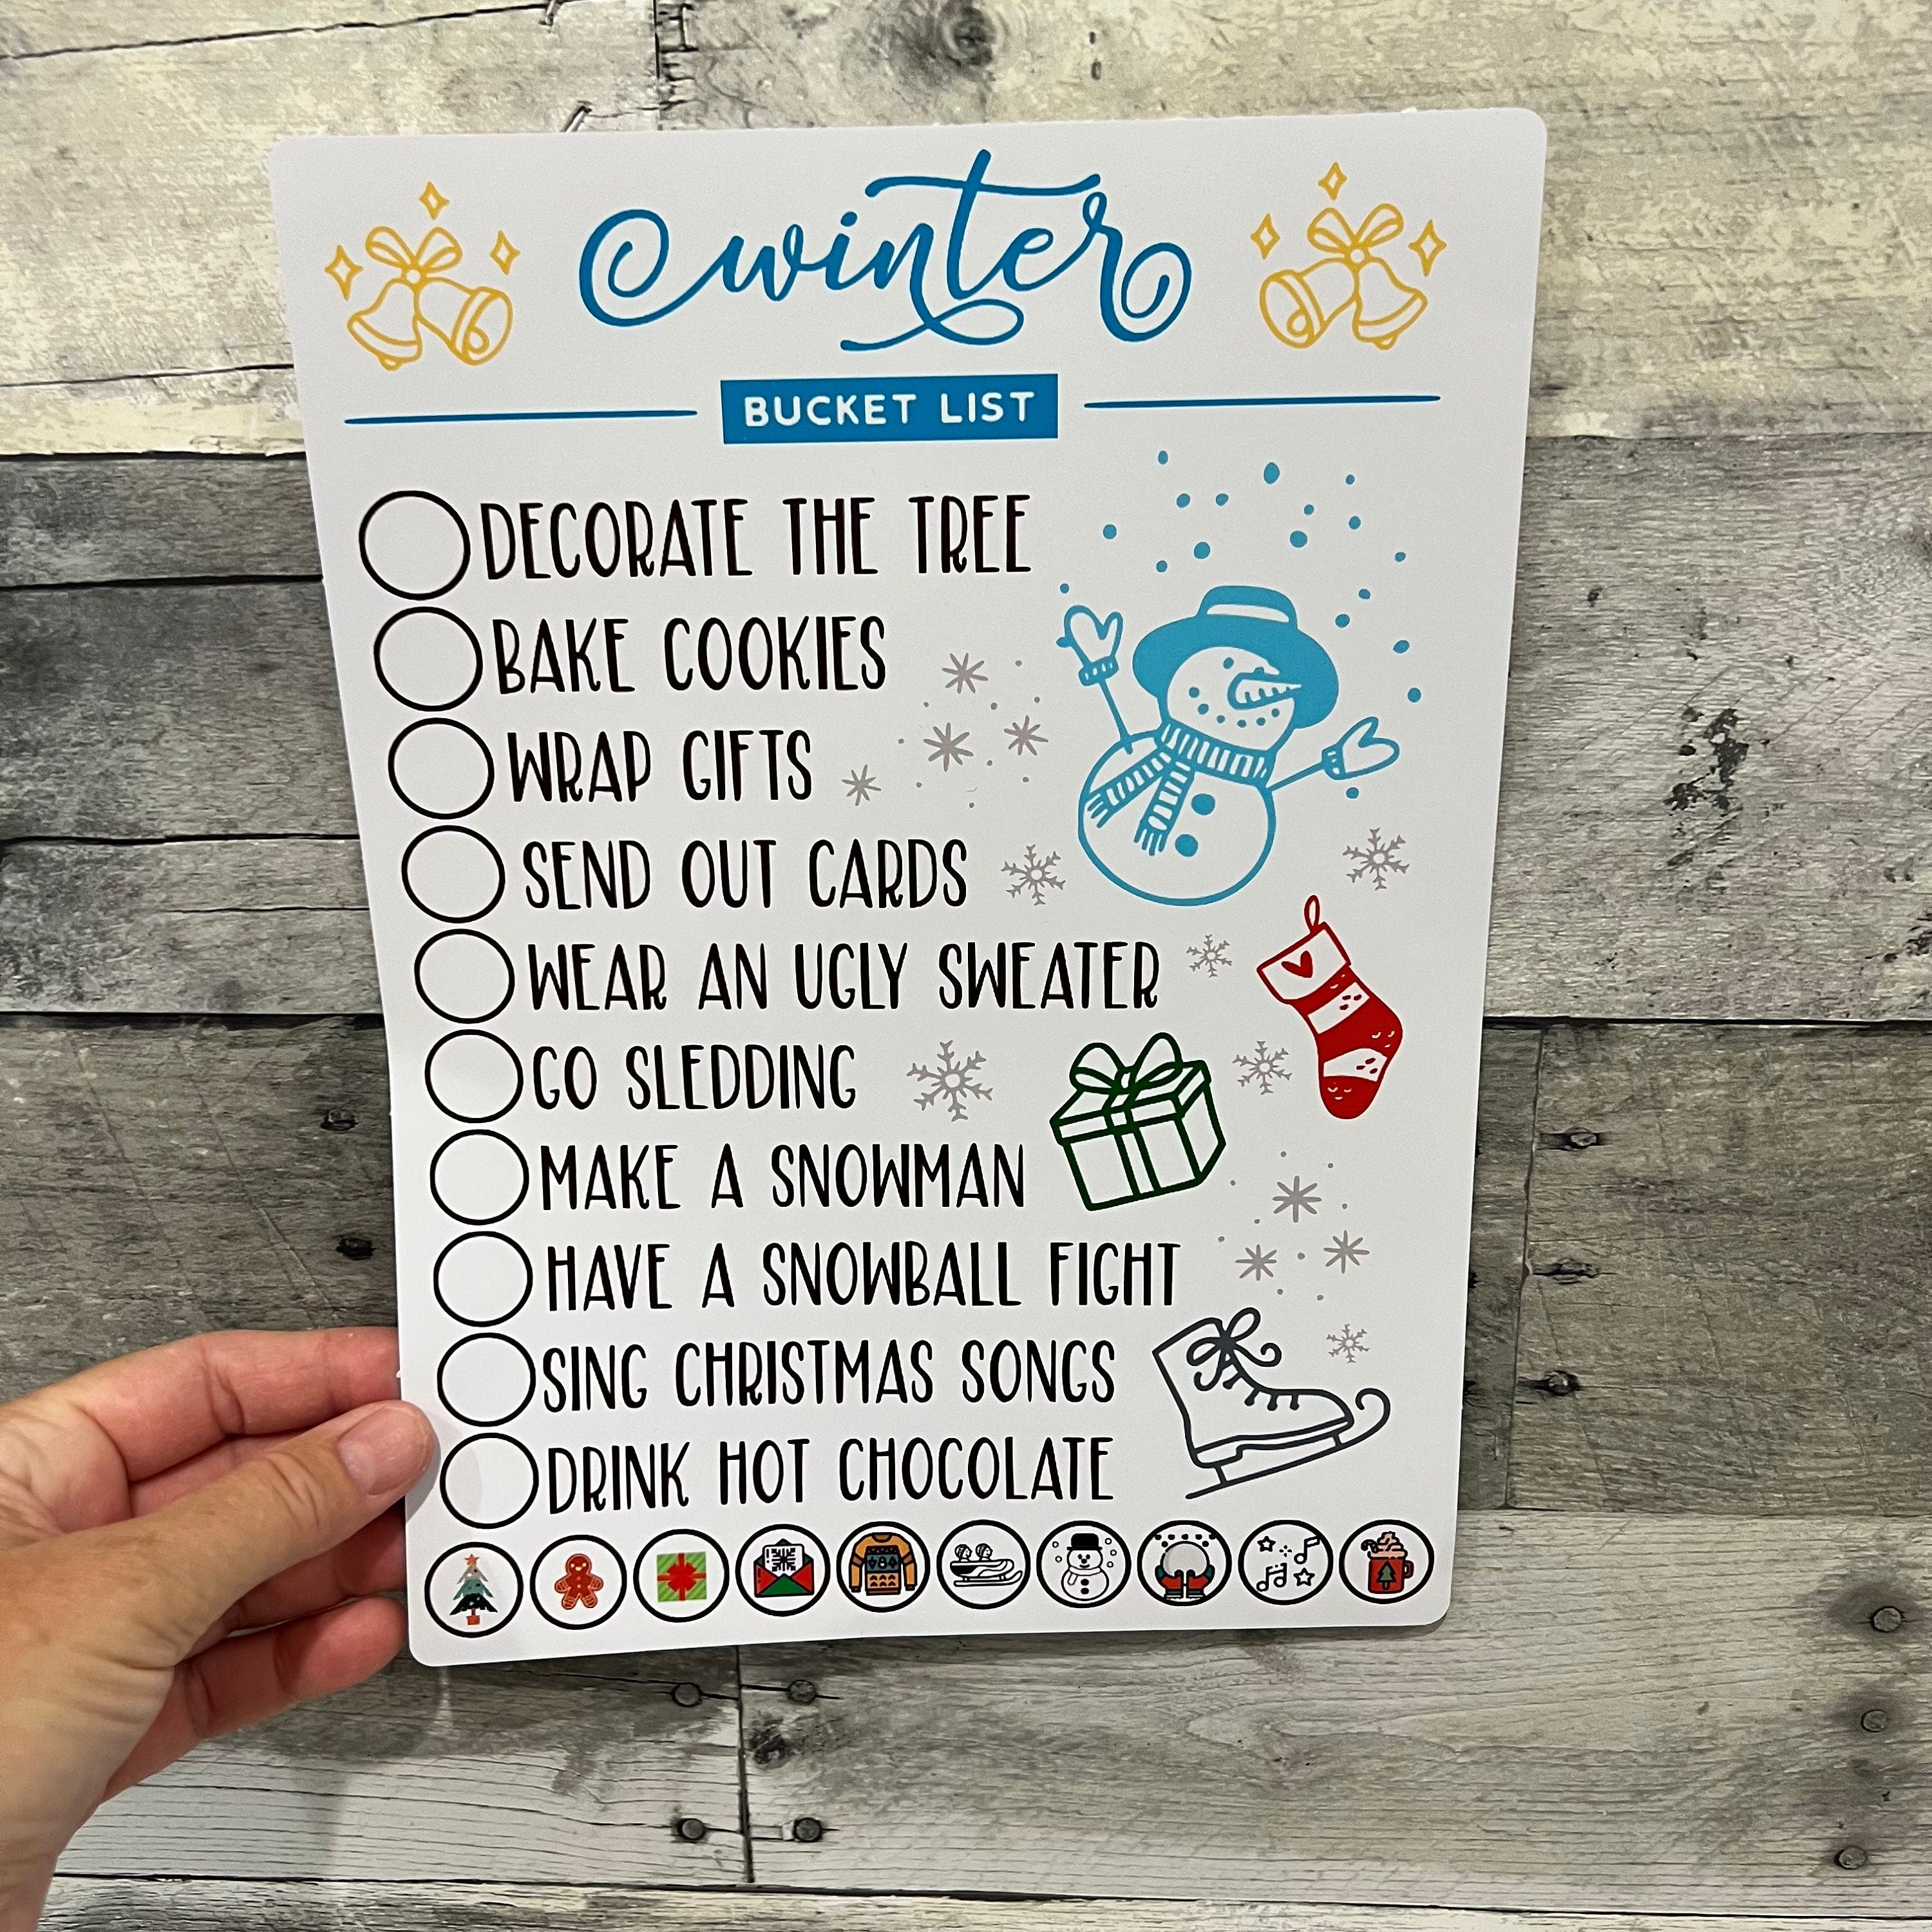 winter
BUCKET LIST
DECORATE THE TREE
BAKE COOKIES
WRAP GIFTS
SEND OUT CARDS
WEAR AN UGLY SWEATER
GO SLEDDING
MAKE A SNOWMAN
HAVE A SNOWBALL FIGHT
SING CHRISTMAS SONGS
DRINK HOT CHOCOLATE